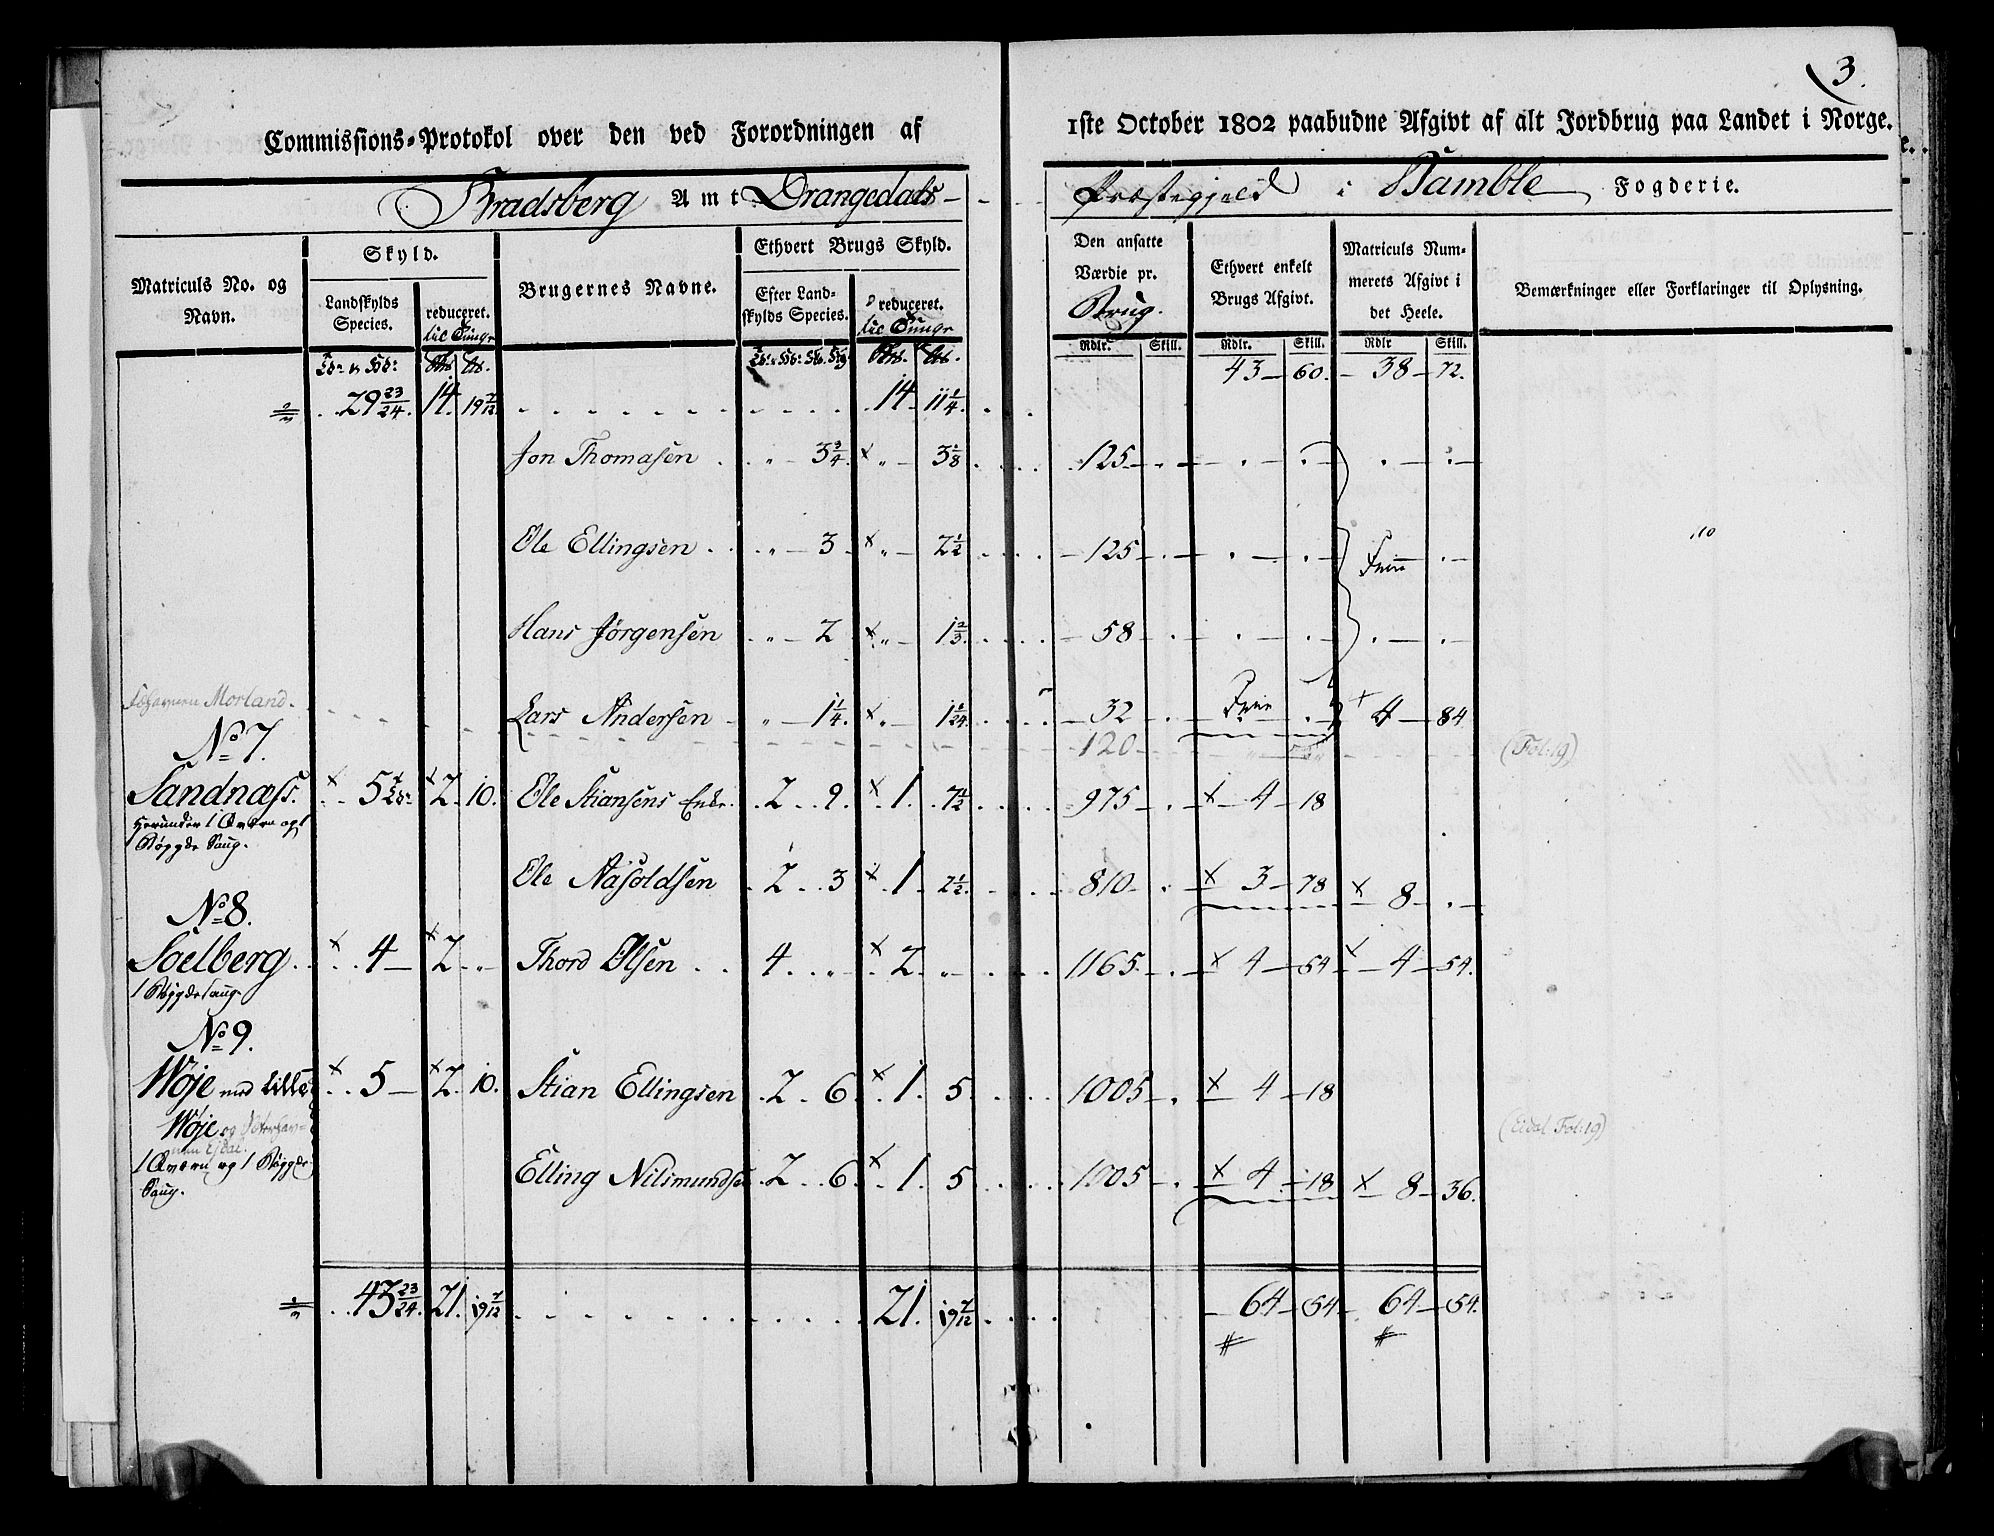 3.
Commissions-Protokol over den ved Forordningen af 1ste October 1802 paabudne Afgivt af alt Jordbrug paa Landet i Norge.
Bradsberg Amt Drangedals Præstegjeld i Bamble Fogderie.
Matriculs No. og Navn.
Skyld.
Landskylds Species.
reduceret. til Tunge
Brugernes Navne.
Ethvert Brugs Skyld.
Efter Landskylds Species.
reduceret. til Tunge
Den ansatte Værdie pr. Brug.
Ethvert enkelt Brugs Afgivt.
Matriculs Nummerets Afgivt i det Heele.
Bemærkninger eller Forklaringer til Oplysning.
Rdlr. Skill. Rdlr. Skill. Rdlr Skill.
43 60. 38 72.
29 23/24 14. 19 7/12 14 11 1/4.
Jon Thomasen 3 3/4. x 3 1/8 125
Ole Ellingsen 3 x 2 1/2 125 Frie
Hans Jörgensen 2 x 1 2/3. 58
Morland.
Lars Andersen 1 1/4. x 1 1/24. 32 Frie x 4 84
No 7. 120 (Fol: 19)
Sandnæss. x 5 x 2 10. Ole Stiansens Enke. 2 9. x 1. 7 1/2 975 x 4 18
herunder 1 Qværn og 1
Bøygde Saug.
Ole Aasoldsen 2 3 x 1 2 1/2. 810 x 3 78 x 8
No 8.
Soelberg x 4 x 2 Thord Olsen 4 x 2 1165. x 4 54 x 4 54.
1 Bøygde Saug
No 9.
Wöje med Lille x 5 x 2 10. Stian Ellingsen 2 6 x 1. 5 1005 x 4 18
Wöje og
(Eidal Fol: 19)
1 Qværn og 1 Bøygde
Saug.
Elling Nilimundse 2 6 x 1 5 1005 x 4 18 x 8 36.
43 23/24. 21. 19 7/12 21. 19 7/12 64 54 64 54.